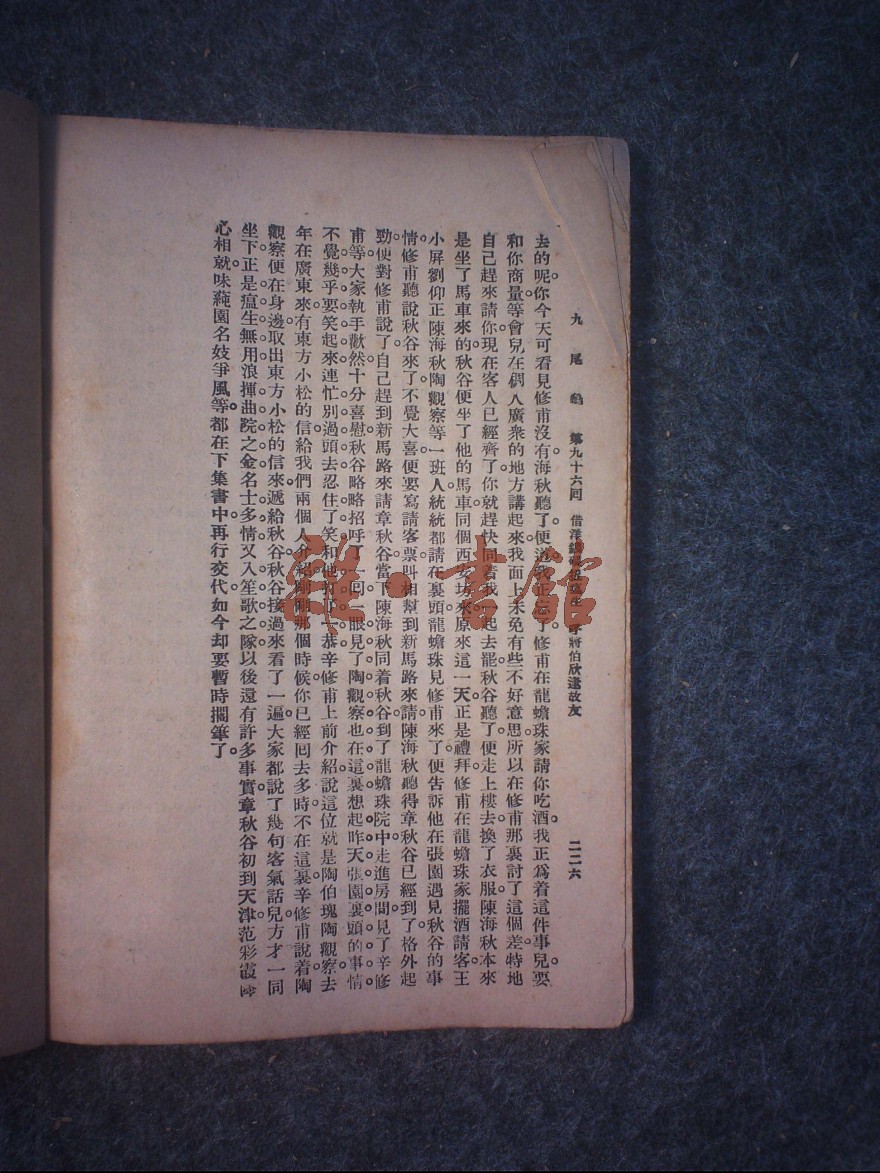 九尾龜 第九十六回 借洋 伯欣逢故友 二二六
去的呢。你今天可看見修甫沒有。海秋聽了。便道。我正忘了。修甫在龍蟾珠家請你吃酒。我正爲着這件事兒。要
和你商量。等會兒在稠人廣衆的地方講起來。我面上未免有些不好意思。所以在修甫那裏討了這個差。特地
自己趕來請你。現在客人已經齊了。你就趕快同着我一起去罷。秋谷聽了。便走上樓去換了衣服。陳海秋本來
是坐了馬車來的。秋谷便坐了他的馬車。同到西安坊來。原來這一天正是禮拜。修甫在龍蟾珠家擺酒請客。王
小屏劉仰正陳海秋陶觀察等一班人。統統都請在裏頭。龍蟾珠見修甫來了。便告訴他在張園遇見秋谷的事
情。修甫聽說秋谷來了。不覺大喜。便要寫請客票叫相幫到新馬路來請。陳海秋聽得章秋谷已經到了。格外起
勁。便對修甫說了。自己趕到新馬路來請章秋谷。當下陳海秋同着秋谷到了龍蟾珠院中。走進房間。見了辛修
甫等。大家執手歡然。十分喜慰。秋谷略略招呼了一回。一眼見了陶觀察也在這裏。想起昨天張園裏頭的事情。
不覺幾乎要笑起來。連忙別過頭去忍住了笑。和他打了一恭。辛修甫上前介紹說。這位就是陶伯瑰陶觀察。去
年在廣東來。有東方小松的信給我們兩個人介紹。剛剛那個時候。你已經回去多時。不在這裏。辛修甫說着。陶
觀察便在身邊取出東方小松的信來。遞給秋谷。秋谷接過來看了一遍。大家都說了幾句客氣話兒。方才一同
坐下。正是。瘟生無用。浪揮曲院之金。名士多情。又入笙歌之隊。以後還有許多事實。章秋谷初到天津。范彩霞
心相就。味蒓園名妓爭風等。都在下集書中。再行交代。如今却要暫時擱筆了。
雜·書館